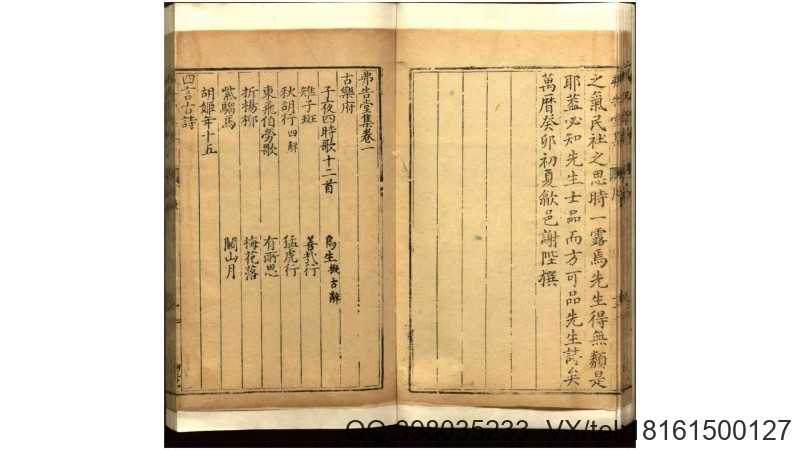 之氣民社之思時一露焉先生得無纇是
耶蓋必知先生士品而方可品先生詩矣
萬曆癸卯初夏歙邑謝陛撰
弗告堂集卷一
古樂府
子夜四時歌十二首
烏生擬古辭
雉子斑
善哉行
秋胡行四解
猛虎行
東飛伯勞歌
有所思
折楊柳
梅花落
紫騮馬
關山月
胡姬年十五
四言古詩
VX/tel 18161500127